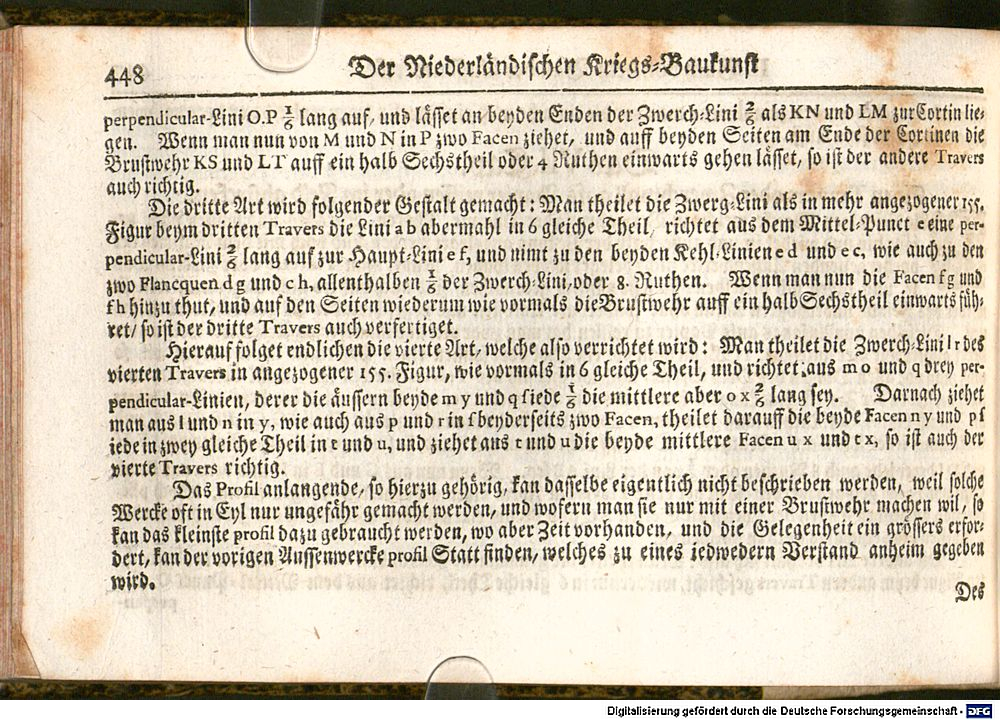 448
Der Niederländischen Kriegs-Baukunst
perpendicular-Lini O.P 1/6 lang auf, und lässet an beyden Enden der Zwerch-Lini 2/6 als KN und LM zur Cortin lie-
gen. Wenn man nun von M und N in P zwo Facen ziehet, und auff beyden Seiten am Ende der Cortinen die
Brustwehr KS und LT auff ein halb Sechstheil oder 4 Ruthen einwarts gehen lässet, so ist der andere Travers
auch richtig.
Die dritte Art wird folgender Gestalt gemacht: Man theilet die Zwerg-Lini als in mehr angezogener 155.
Figur beym dritten Travers die Lini a b abermahl in 6 gleiche Theil, richtet aus dem Mittel-Punct e eine per-
pendicular-Lini 2/6 lang auf zur Haupt-Lini e f, und nimt zu den beyden Kehl-Linien e d und e c, wie auch zu den
zwo Plancquen d g und c h, allenthalben 1/6 der Zwerch-Lini, oder 8. Ruthen. Wenn man nun die Facen f g und
f h hinzu thut, und auf den Seiten wiederum wie vormals die Brustwehr auff ein halb Sechstheil einwarts füh-
ret/ so ist der dritte Travers auch verfertiget.
Hierauf folget endlichen die vierte Art, welche also verrichtet wird: Man theilet die Zwerch-Lini l r des
vierten Travers in angezogener 155. Figur, wie vormals in 6 gleiche Theil, und richtet aus m o und q drey per-
pendicular-Linien, derer die äussern beyde m y und q s iede 1/6 die mittlere aber o x 2/6 lang sey. Darnach ziehet
man aus l und n in y, wie auch aus p und r in s beyderseits zwo Facen, theilet darauff die beyde Facen n y und p s
iede in zwey gleiche Theil in t und u, und ziehet aus t und u die beyde mittlere Facen u x und t x, so ist auch der
vierte Travers richtig.
Das Profil anlangende, so hierzu gehörig, kan dasselbe eigentlich nicht beschrieben werden, weil solche
Wercke oft in Eyl nur ungefähr gemacht werden, und wofern man sie nur mit einer Brustwehr machen wil, so
kan das kleinste profil dazu gebraucht werden, wo aber Zeit vorhanden, und die Gelegenheit ein grössers erfor-
dert, kan der vorigen Aussenwercke profil Statt finden, welches zu eines iedwedern Verstand anheim gegeben
wird.
Des
Digitalisierung gefördert durch die Deutsche Forschungsgemeinschaft - DFG